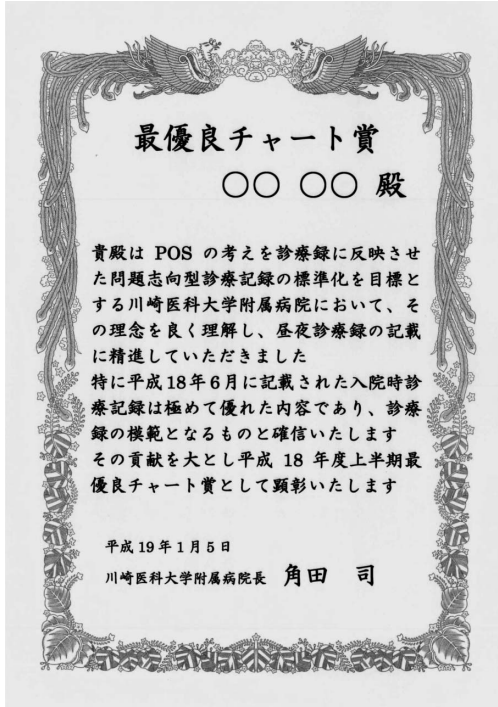 最優良チャート賞
○○ ○○ 殿
貴殿は POS の考えを診療録に反映させ
た問題志向型診療記録の標準化を目標と
する川崎医科大学附属病院において、そ
の理念を良く理解し、昼夜診療録の記載
に精進していただきました
特に平成18年6月に記載された入院時診
療記録は極めて優れた内容であり、診療
録の模範となるものと確信いたします
その貢献を大とし平成 18 年度上半期最
優良チャート賞として顕彰いたします
平成19年1月5日
川崎医科大学附属病院長 角田 司